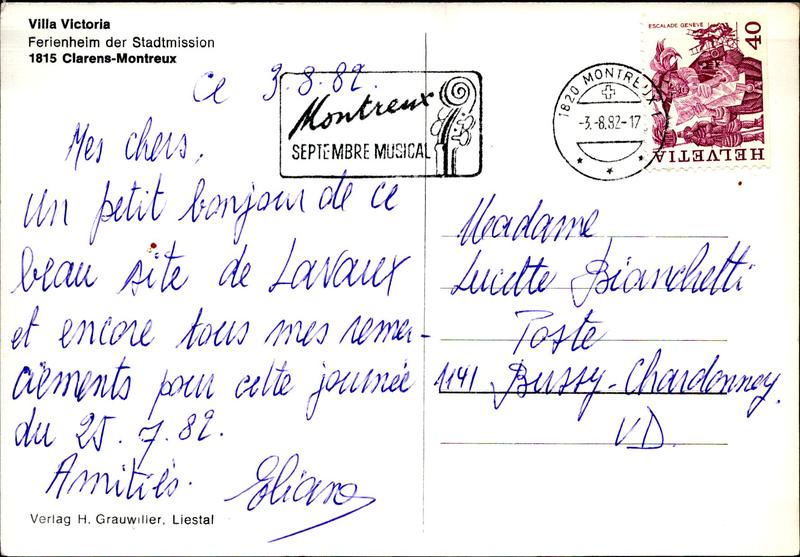 Villa Victoria
Ferienheim der Stadtmission
1815 Clarens-Montreux
ce 3.8.82.
Montreux
SEPTEMBRE MUSICAL
1820 MONTREUX 1
-3.-8.82-17
ESCALADE GENÈVE
40
HELVETIA
Mes chers,
Un petit bonjour de ce
beau site de Lavaux
et encore tous mes remer-
ciements pour cette journée
du 25.7.82.
Amitiés. Eliane
Madame
Lucette Bianchetti
Poste
1141 Bussy-Chardonney.
VD.
Verlag H. Grauwiller, Liestal